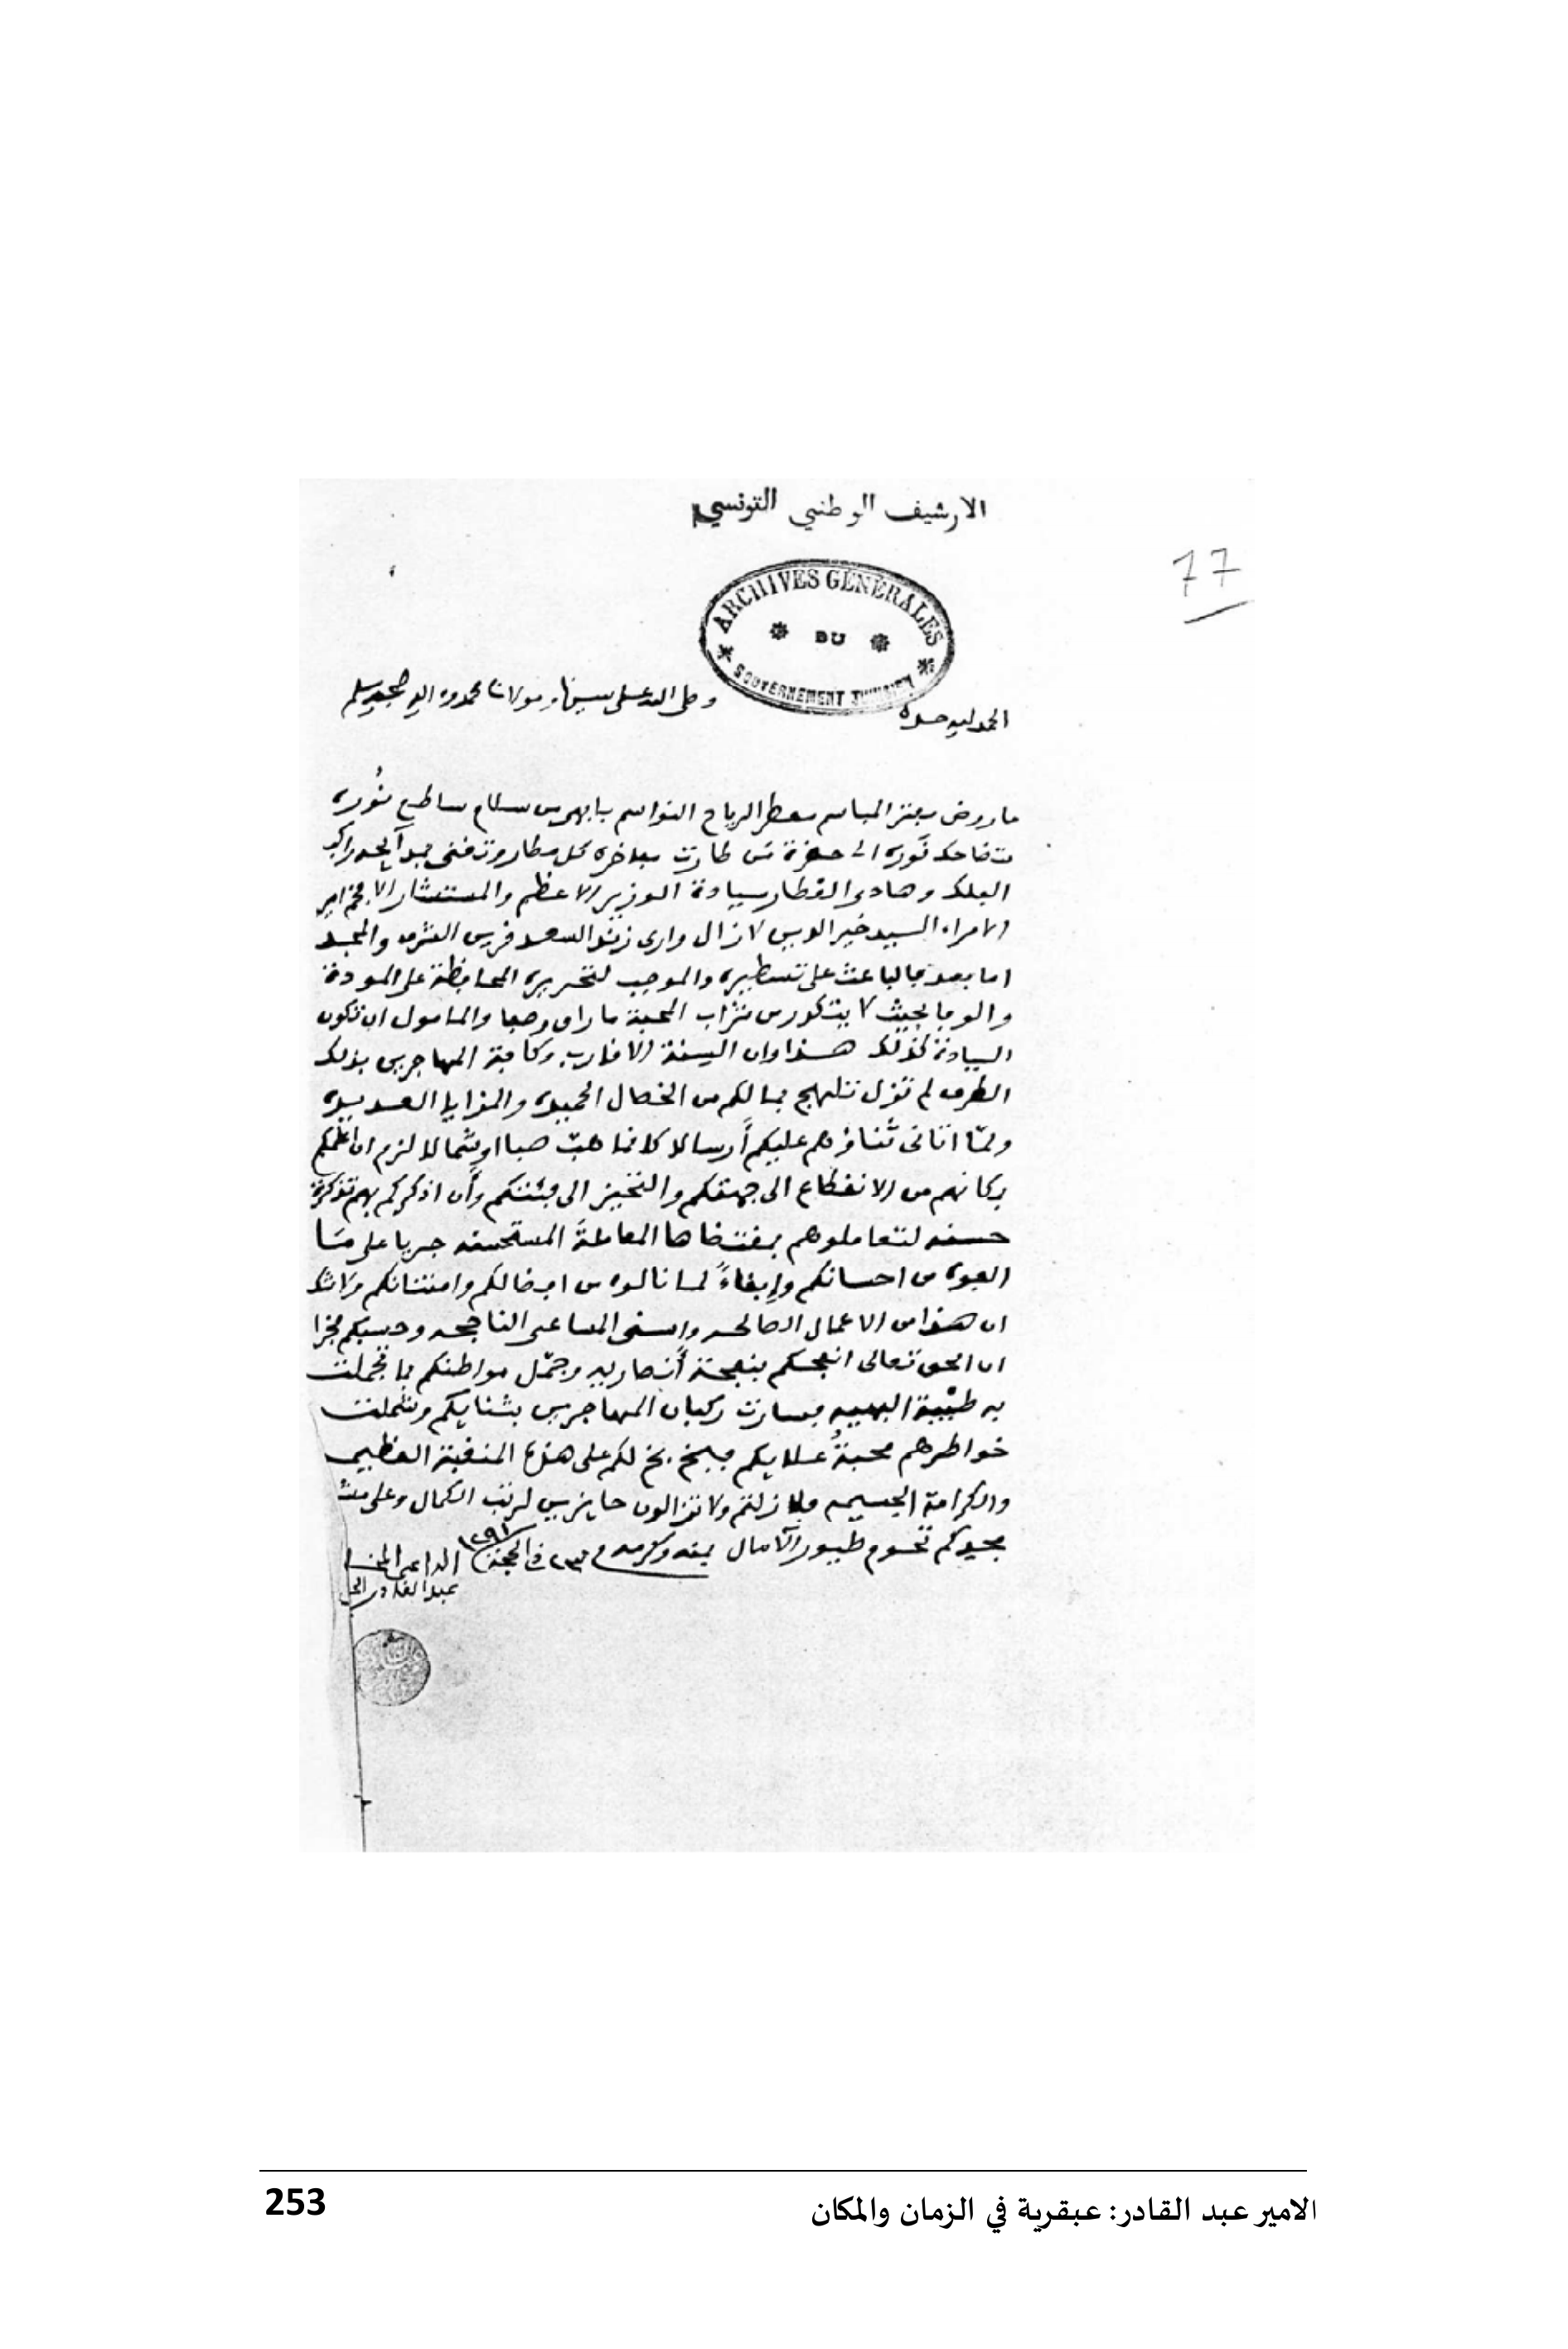 الارشيف الوطني التونسي
77
ARCHIVES GENERALES
DU
GOUVERNEMENT TUNISIEN
الحمد لله وحده
وصلى الله على سيدنا ومولانا محمد وءاله وصحبه وسلم
ما روض يفتر المباسم معطر الرياح النواسم بابهى من سلام ساطع نُوره
متضاحك نَوره الى حضرة مَن طارت مفاخره كل مطار
الفلك وهادى القطار سيادة الوزير الاعظم والمستشار الافخم امير
الامراء السيد خير الدين لا زال وارى زند السعد قرين الشرف والمجد
اما بعد فالباعث على تسطيره والموجب لتحريره المحافظة على المودة
والوفا بحيث لا يتكدر من شراب المحبة ما راق وصفا والمامول ان تكون
السيادة كذلك هذا وان السنة الاقارب وكافة المهاجرين بذلك
الطرف لم تزل تلهج بما لكم من الخصال الحميده والمزايا العديده
ولمّا اتانى ثناؤهم عليكم أرسالا كلما هبّ صبا او شمالا لزم ان اعلمكم
بمكانهم من الانقطاع الى جهتكم والتحيز الى فئتكم وأن اذكركم بهم تذكرة
حسنه لتعاملوهم بمقتضاها المعاملةَ المستحسنه جريا على مَا
الفوه من احسانكم وإبقاءً لما نالوه من افضالكم وامتنانكم ولا شك
ان هذا من الاعمال الصالحه واسنى المساعى الناجحه وحسبكم فخرا
ان الحق تعالى انفحكم بنفحة أنصاريه وجمّل مواطنكم بما تجملت
به طيْبة البهيه فسارت ركبان المهاجرين بثنايكم وشملت
خواطرهم محبةُ علايكم فبخ بخ لكم على هذه المنقبة العظيمه
والكرامة الجسيمه فلا زلتم ولا تزالون حايزين لرتب الكمال وعلى
مجدكم تحوم طيور الآمال بمنه وكرمه فى ٢٣ ذى الحجة ١٢٩١
الداعى
عبد القادر
253
الامير عبد القادر: عبقرية في الزمان والمكان